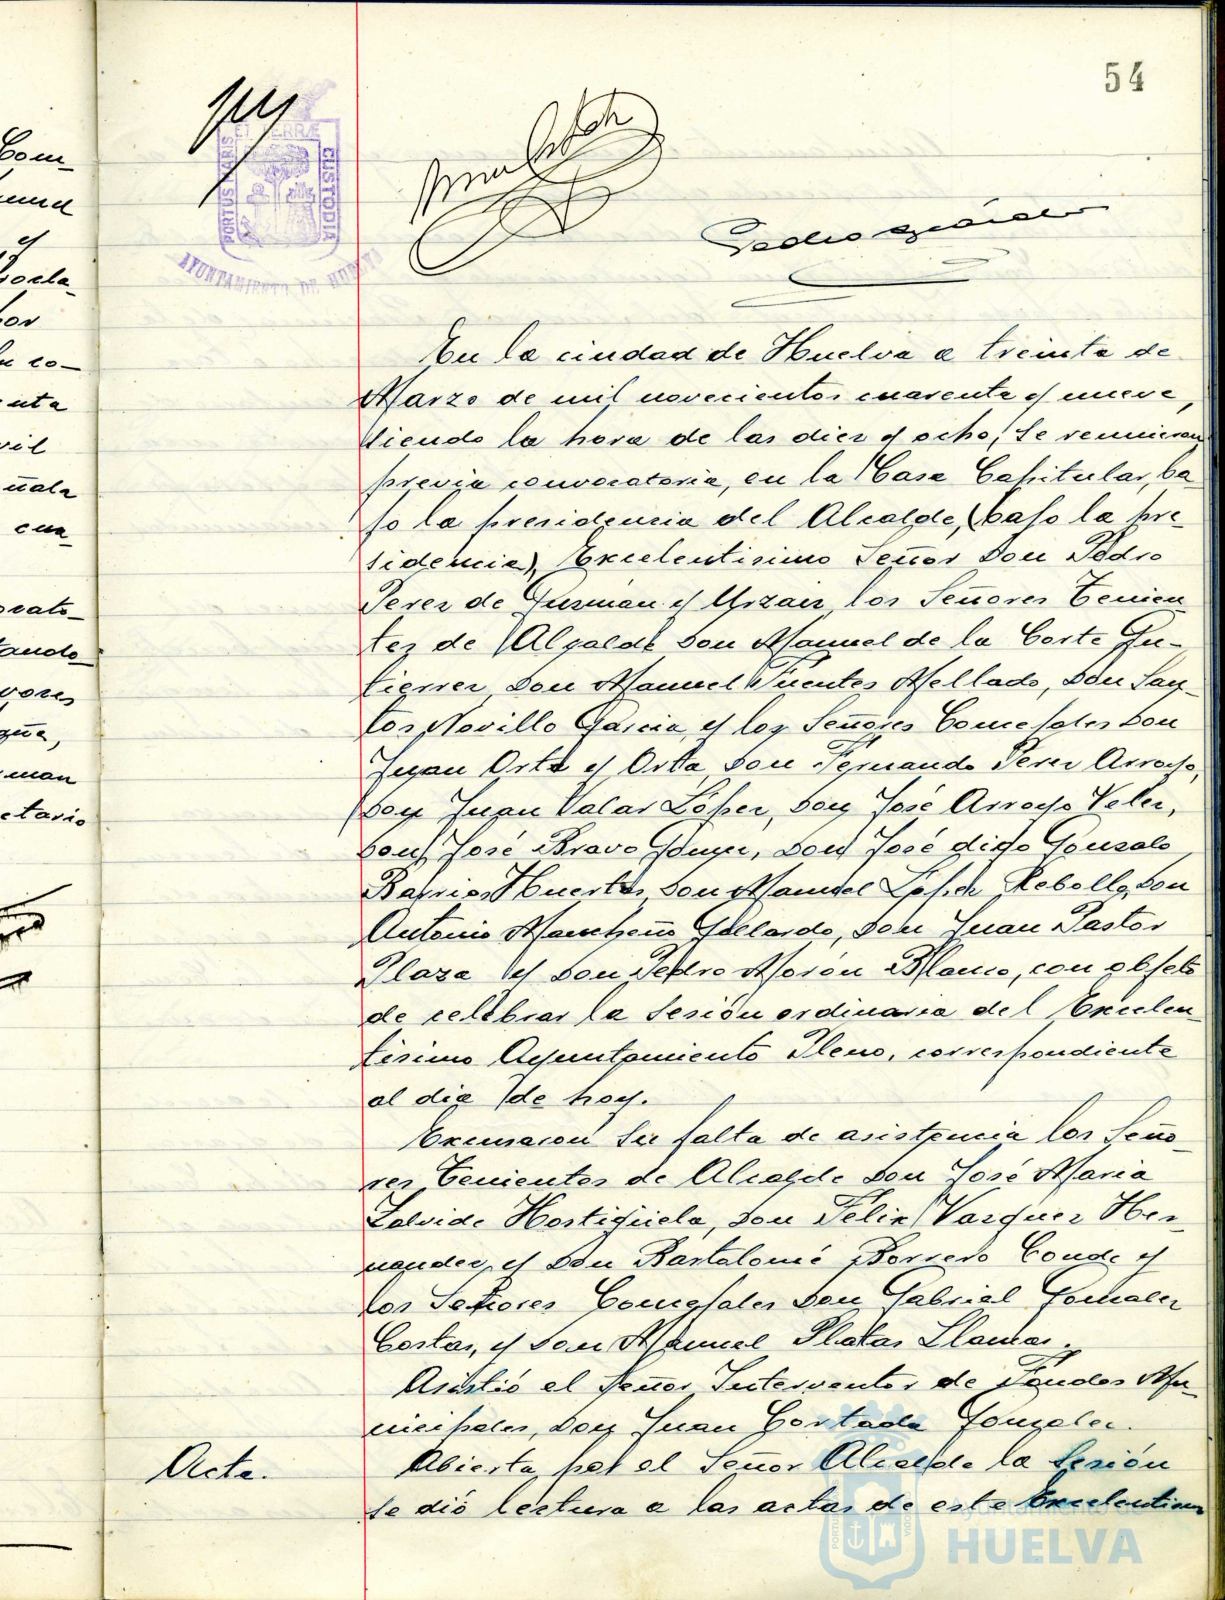 54
PORTUS MARIS ET TERRÆ CUSTODIA
AYUNTAMIENTO DE HUELVA
En la ciudad de Huelva a treinta de
Marzo de mil novecientos cuarenta y nueve,
siendo la hora de las diez y ocho, se reunieron
previa convocatoria, en la Casa Capitular, ba-
jo la presidencia del Alcalde, (bajo la pre-
sidencia), Excelentisimo Señor Don Pedro
Perez de Guzmán y Urzaiz, los Señores Tenien-
tes de Alcalde Don Manuel de la Corte Gu-
tierrez, Don Manuel Fuentes Mellado, Don San-
tos Novillo Garcia, y los Señores Concejales Don
Juan Orta y Orta, Don Fernando Perez Arroyo,
Don Juan Valar López, Don José Arroyo Velez,
Don José Bravo Gomez, Don José digo Gonzalo
Barrios Huertas, Don Manuel López Rebollo, Don
Antonio Mancheño Gallardo, Don Juan Pastor
Plaza y Don Pedro Morón Blanco, con objeto
de celebrar la sesión ordinaria del Excelen-
tisimo Ayuntamiento Pleno, correspondiente
al dia de hoy.
Excusaron su falta de asistencia los Seño-
res Tenientes de Alcalde Don José Maria
Zalvide Hostigüela, Don Felix Vazquez Her-
nandez, y Don Bartolomé Borrero Conde y
los Señores Concejales Don Gabriel Gonzalez
Costas, y Don Manuel Platas Llamas.
Asistió el señor Interventor de Fondos Mu-
nicipales, Don Juan Cortada Gonzalez.
Acta.
Abierta por el Señor Alcalde la Sesión
se dió lectura a las actas de este Excelentisimo
Ayuntamiento de
HUELVA